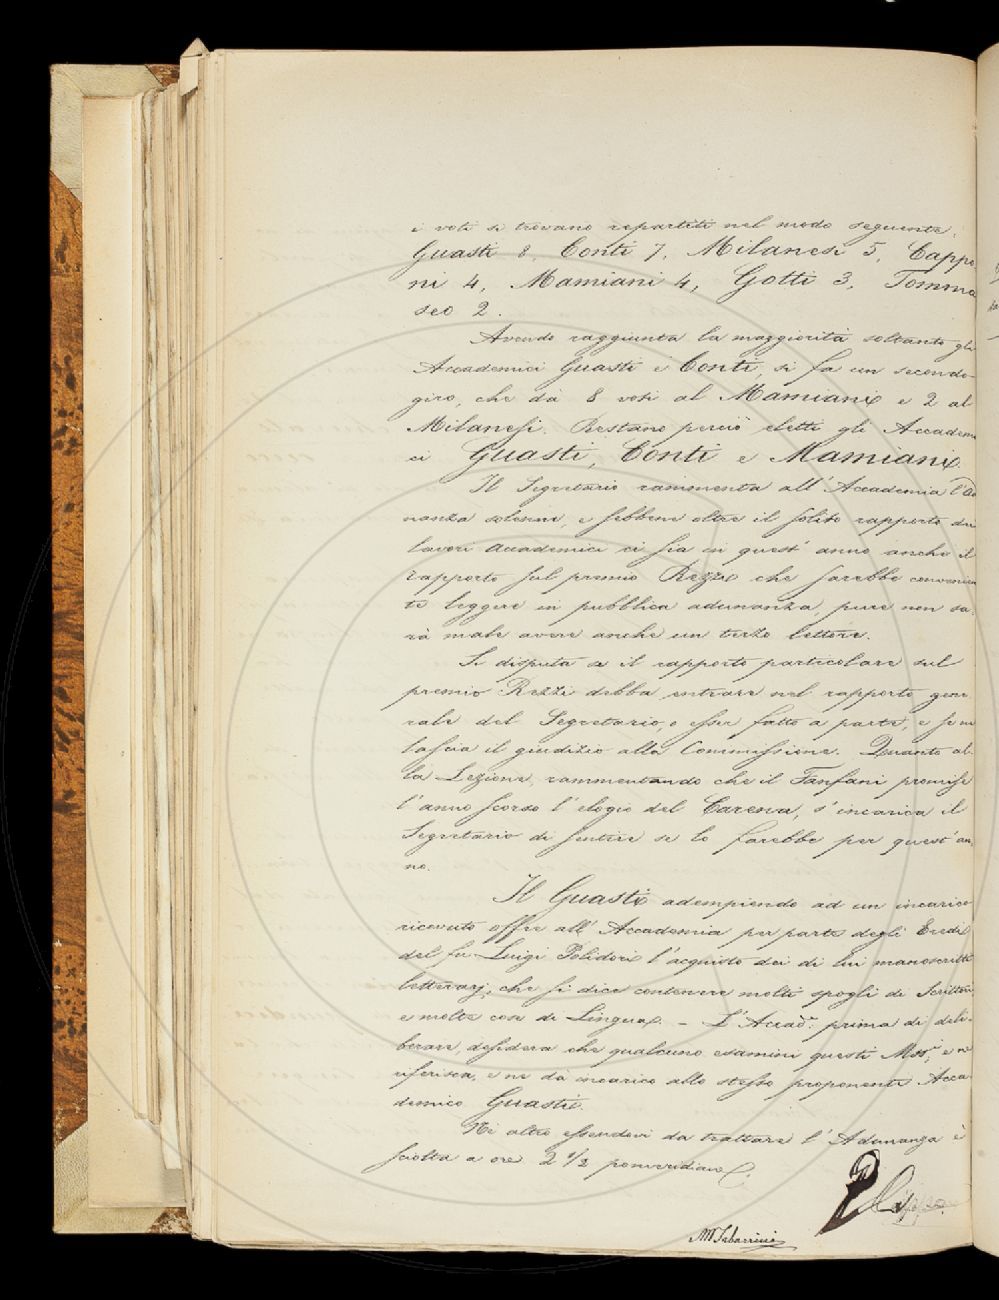 i voti si trovano repartiti nel modo seguente.
Guasti 8, Conti 7, Milanesi 5, Cappo
ni 4, Mamiani 4, Gotti 3, Tomma
seo 2.
Avendo raggiunta la maggiorità soltanto gli
Accademici Guasti e Conti, si fa un secondo
giro, che dà 8 voti al Mamiani e 2 al
Milanesi. Restano perciò eletti gli Accadem
ci Guasti, Conti e Mamiani.
Il Segretario rammenta all'Accademia l'Adu
nanza solenne, e sebbene oltre il solito rapporto dei
lavori accademici ci sia in quest'anno anche il
rapporto sul premio Rezzi che sarebbe convenien
te leggere in pubblica adunanza, pure non sa
rà male avere anche un terzo lettore.
Si disputa se il rapporto particolare sul
premio Rezzi debba entrare nel rapporto gene
rale del Segretario, o esser fatto a parte, e se ne
lascia il giudizio alla Commissione. Quanto al
la Lezione, rammentando che il Fanfani promise
l'anno scorso l'elogio del Carena, s'incarica il
Segretario di sentire se lo farebbe per quest'an
no.
Il Guasti adempiendo ad un incarico
ricevuto offre all'Accademia per parte degli Eredi
del fu Luigi Polidori l'acquisto dei di lui manoscritti
letterarj, che si dice contenere molti spogli di Scrittori
e molte cose di Lingua. - L'Accad.a prima di deli
berare, desidera che qualcuno esamini questi Mss.i e ne
riferisca, e ne dà incarico allo stesso proponente Acca
demico Guasti.
Nè altro essendovi da trattare l'Adunanza è
sciolta a ore 2 1/2 pomeridiane.
MTabarrini